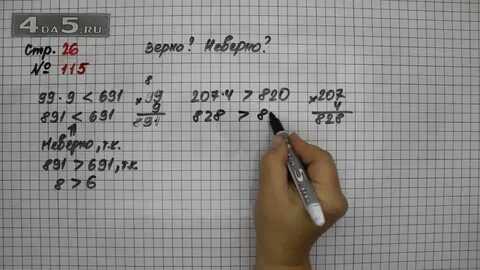 4DA5.RU
Стр. 26
№ 115
Верно? Неверно?
99·9 < 691
891 < 691
Неверно, т.к.
891 > 691, т.к.
8 > 6
8
× 99
9
891
207·4 > 820
828 > 8
× 207
4
828